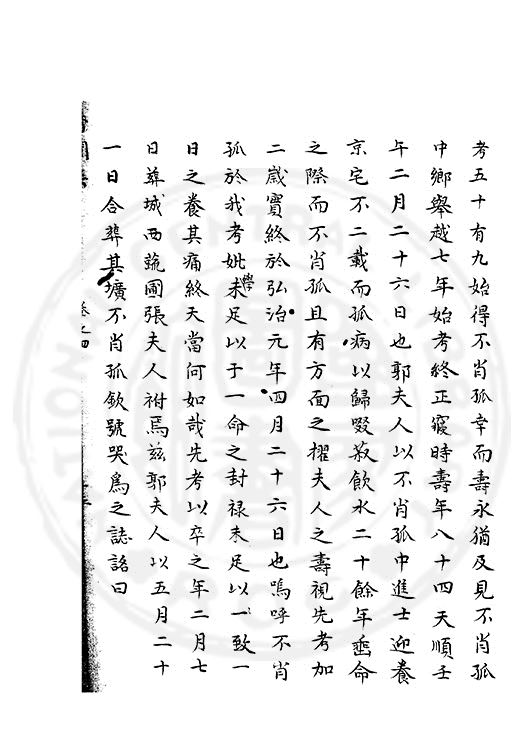 考五十有九始得不肖孤幸而壽永猶及見不肖孤
中鄉舉越七年始考終正寢時壽年八十四天順壬
午二月二十六日也郭夫人以不肖孤中進士迎養
京宅不二載而孤病以歸啜菽飲水二十餘年垂命
之際而不肖孤且有方面之擢夫人之壽視先考加
二歲實終於弘治元年四月二十六日也嗚呼不肖
孤於我考妣學未足以于一命之封祿未足以一致一
日之養其痛終天當何如哉先考以卒之年二月七
日葬城西蔬圃張夫人祔焉茲郭夫人以五月二十
一日合葬其壙不肖孤欽號哭爲之誌銘曰
卷之四